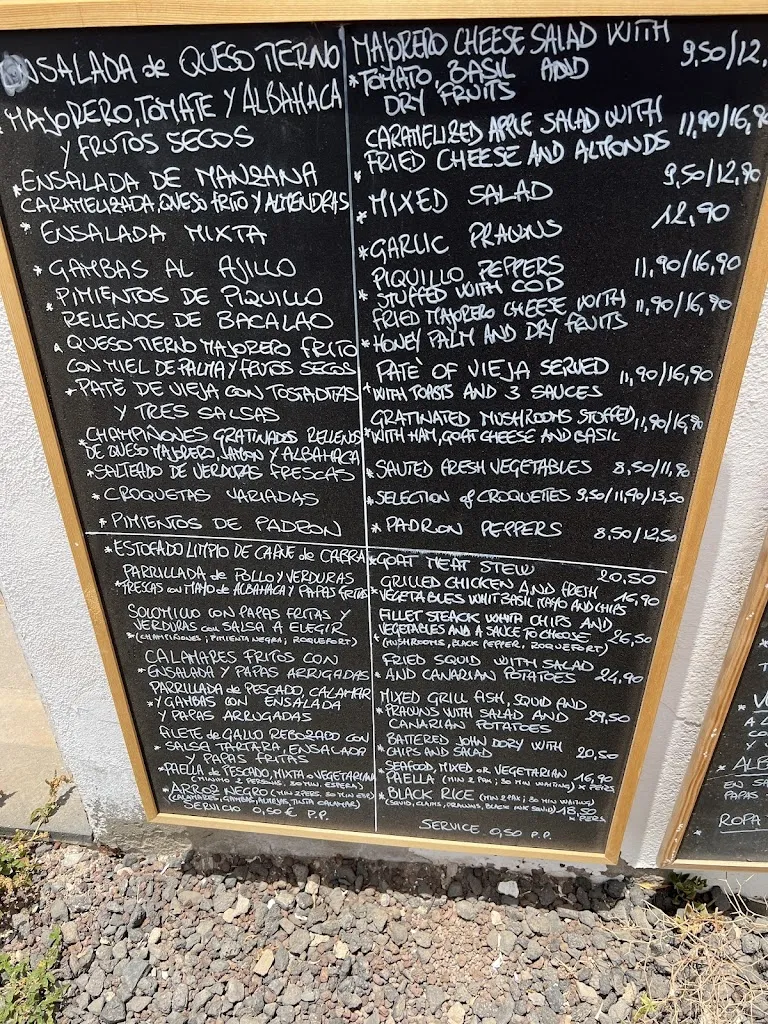 ENSALADA de QUESO TIERNO
MAJORERO, TOMATE Y ALBAHACA
Y FRUTOS SECOS
* ENSALADA DE MANZANA
CARAMELIZADA, QUESO FRITO Y ALMENDRAS
* ENSALADA MIXTA
* GAMBAS AL AJILLO
* PIMIENTOS DE PIQUILLO
RELLENOS DE BACALAO
* QUESO TIERNO MAJORERO FRITO
CON MIEL DE PALMA Y FRUTOS SECOS
* PATÈ DE VIEJA CON TOSTADITAS
Y TRES SALSAS
* CHAMPIÑONES GRATINADOS RELLENOS
DE QUESO MAJORERO, JAMON Y ALBAHACA
* SALTEADO DE VERDURAS FRESCAS
* CROQUETAS VARIADAS
* PIMIENTOS DE PADRON
* ESTOFADO LIMPIO DE CARNE de CABRA
PARRILLADA de POLLO Y VERDURAS
* FRESCAS con MAYO de ALBAHACA Y PAPAS FRITAS
SOLOMILLO CON PAPAS FRITAS Y
VERDURAS con SALSA A ELEGIR
* (CHAMPIÑONES; PIMIENTA NEGRA; ROQUEFORT)
CALAMARES FRITOS CON
* ENSALADA Y PAPAS ARRUGADAS
PARRILLADA de PESCADO, CALAMAR
* Y GAMBAS CON ENSALADA
Y PAPAS ARRUGADAS
FILETE de GALLO REBOZADO CON
* SALSA TARTARA, ENSALADA
Y PAPAS FRITAS
* PAELLA de PESCADO, MIXTA o VEGETARIANA
(MINIMO 2 PERSONAS, 30 MIN. ESPERA)
* ARROZ NEGRO (MIN 2 PERS, 30 MIN ESP.)
(CALAMARES, GAMBAS, ALMEJAS, TINTA CALAMAR)
SERVICIO 0,50 € P.P.
MAJORERO CHEESE SALAD WITH
* TOMATO, BASIL AND 9,50/12,
DRY FRUITS
CARAMELIZED APPLE SALAD WITH 11,90/16,90
* FRIED CHEESE AND ALMONDS
* MIXED SALAD 9,50/12,90
* GARLIC PRAWNS 12,90
PIQUILLO PEPPERS 11,90/16,90
* STUFFED WITH COD
FRIED MAJORERO CHEESE WITH 11,90/16,90
* HONEY PALM AND DRY FRUITS
PATE' OF VIEJA SERVED 11,90/16,90
* WITH TOASTS AND 3 SAUCES
GRATINATED MUSHROOMS STUFFED 11,90/16,90
* WITH HAM, GOAT CHEESE AND BASIL
* SAUTED FRESH VEGETABLES 8,50/11,90
* SELECTION of CROQUETTES 9,50/11,90/13,50
* PADRON PEPPERS 8,50/12,50
* GOAT MEAT STEW 20,50
GRILLED CHICKEN AND FRESH
* VEGETABLES WHIT BASIL MAYO AND CHIPS 16,90
FILLET STEACK WHITH CHIPS AND
VEGETABLES AND A SAUCE TO CHOOSE 26,50
* (MUSHROOMS, BLACK PEPPER, ROQUEFORT)
FRIED SQUID WITH SALAD
* AND CANARIAN POTATOES 24,90
MIXED GRILL FISH, SQUID AND
* PRAWNS WITH SALAD AND 29,50
CANARIAN POTATOES
BATTERED JOHN DORY WITH
* CHIPS AND SALAD 20,50
SEAFOOD, MIXED or VEGETARIAN 16,90
* PAELLA (MIN 2 PAX; 30 MIN WAITING) x PERS
* BLACK RICE (MIN 2 PAX; 30 MIN WAITING)
(SQUID, CLAMS, PRAWNS, BLACK INK SQUID) 18,50 x PERS
SERVICE 0,50 P.P.
ROPA